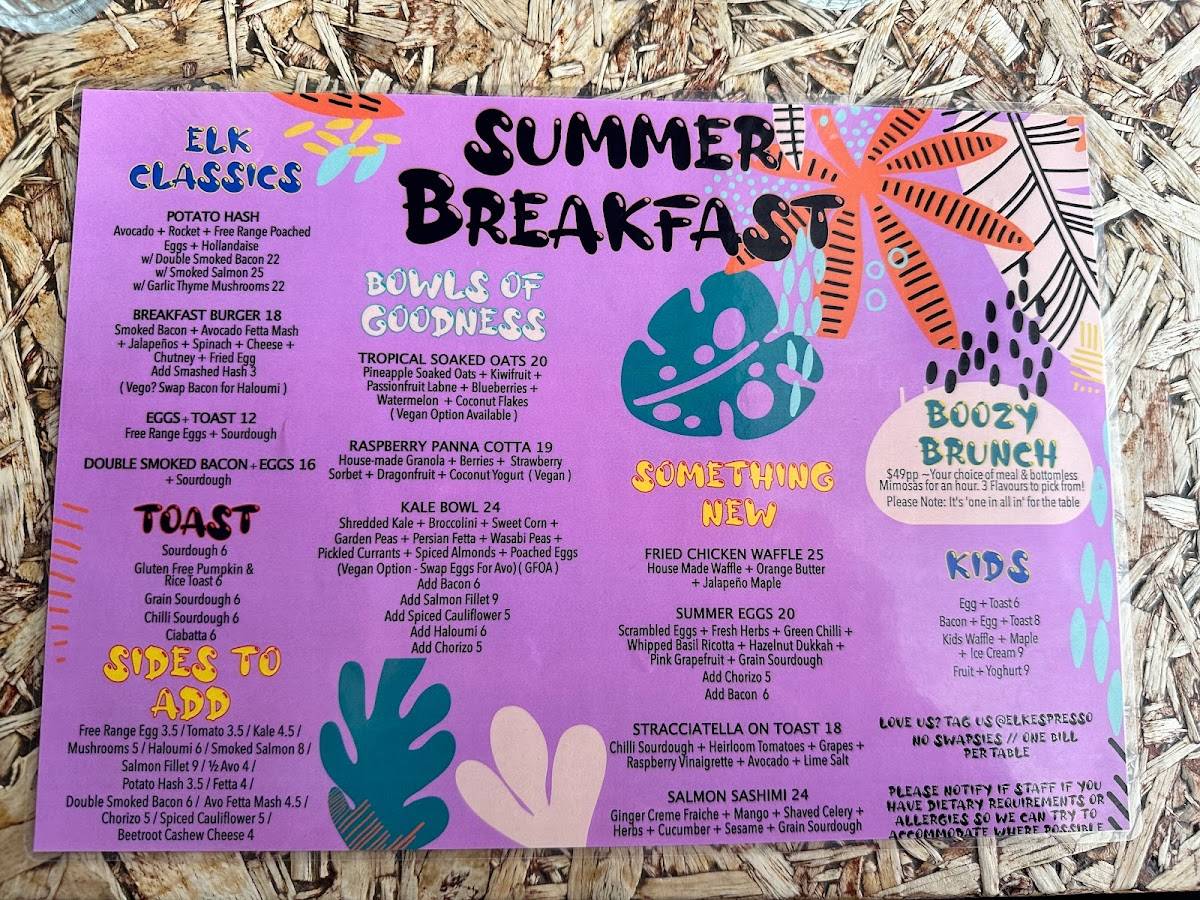 SUMMER
BREAKFAST
ELK
CLASSICS
POTATO HASH
Avocado + Rocket + Free Range Poached
Eggs + Hollandaise
w/ Double Smoked Bacon 22
w/ Smoked Salmon 25
w/ Garlic Thyme Mushrooms 22
BREAKFAST BURGER 18
Smoked Bacon + Avocado Fetta Mash
+ Jalapeños + Spinach + Cheese +
Chutney + Fried Egg
Add Smashed Hash 3
( Vego? Swap Bacon for Haloumi )
EGGS + TOAST 12
Free Range Eggs + Sourdough
DOUBLE SMOKED BACON + EGGS 16
+ Sourdough
TOAST
Sourdough 6
Gluten Free Pumpkin &
Rice Toast 6
Grain Sourdough 6
Chilli Sourdough 6
Ciabatta 6
SIDES TO
ADD
Free Range Egg 3.5 / Tomato 3.5 / Kale 4.5 /
Mushrooms 5 / Haloumi 6 / Smoked Salmon 8 /
Salmon Fillet 9 / ½ Avo 4 /
Potato Hash 3.5 / Fetta 4 /
Double Smoked Bacon 6 / Avo Fetta Mash 4.5 /
Chorizo 5 / Spiced Cauliflower 5 /
Beetroot Cashew Cheese 4
BOWLS OF
GOODNESS
TROPICAL SOAKED OATS 20
Pineapple Soaked Oats + Kiwifruit +
Passionfruit Labne + Blueberries +
Watermelon + Coconut Flakes
( Vegan Option Available )
RASPBERRY PANNA COTTA 19
House-made Granola + Berries + Strawberry
Sorbet + Dragonfruit + Coconut Yogurt ( Vegan )
KALE BOWL 24
Shredded Kale + Broccolini + Sweet Corn +
Garden Peas + Persian Fetta + Wasabi Peas +
Pickled Currants + Spiced Almonds + Poached Eggs
(Vegan Option - Swap Eggs For Avo) ( GFOA )
Add Bacon 6
Add Salmon Fillet 9
Add Spiced Cauliflower 5
Add Haloumi 6
Add Chorizo 5
SOMETHING
NEW
FRIED CHICKEN WAFFLE 25
House Made Waffle + Orange Butter
+ Jalapeño Maple
SUMMER EGGS 20
Scrambled Eggs + Fresh Herbs + Green Chilli +
Whipped Basil Ricotta + Hazelnut Dukkah +
Pink Grapefruit + Grain Sourdough
Add Chorizo 5
Add Bacon 6
STRACCIATELLA ON TOAST 18
Chilli Sourdough + Heirloom Tomatoes + Grapes +
Raspberry Vinaigrette + Avocado + Lime Salt
SALMON SASHIMI 24
Ginger Creme Fraiche + Mango + Shaved Celery +
Herbs + Cucumber + Sesame + Grain Sourdough
BOOZY
BRUNCH
$49pp ~Your choice of meal & bottomless
Mimosas for an hour. 3 Flavours to pick from!
Please Note: It's 'one in all in' for the table
KIDS
Egg + Toast 6
Bacon + Egg + Toast 8
Kids Waffle + Maple
+ Ice Cream 9
Fruit + Yoghurt 9
LOVE US? TAG US @ELKESPRESSO
NO SWAPSIES // ONE BILL
PER TABLE
PLEASE NOTIFY IF STAFF IF YOU
HAVE DIETARY REQUIREMENTS OR
ALLERGIES SO WE CAN TRY TO
ACCOMMODATE WHERE POSSIBLE